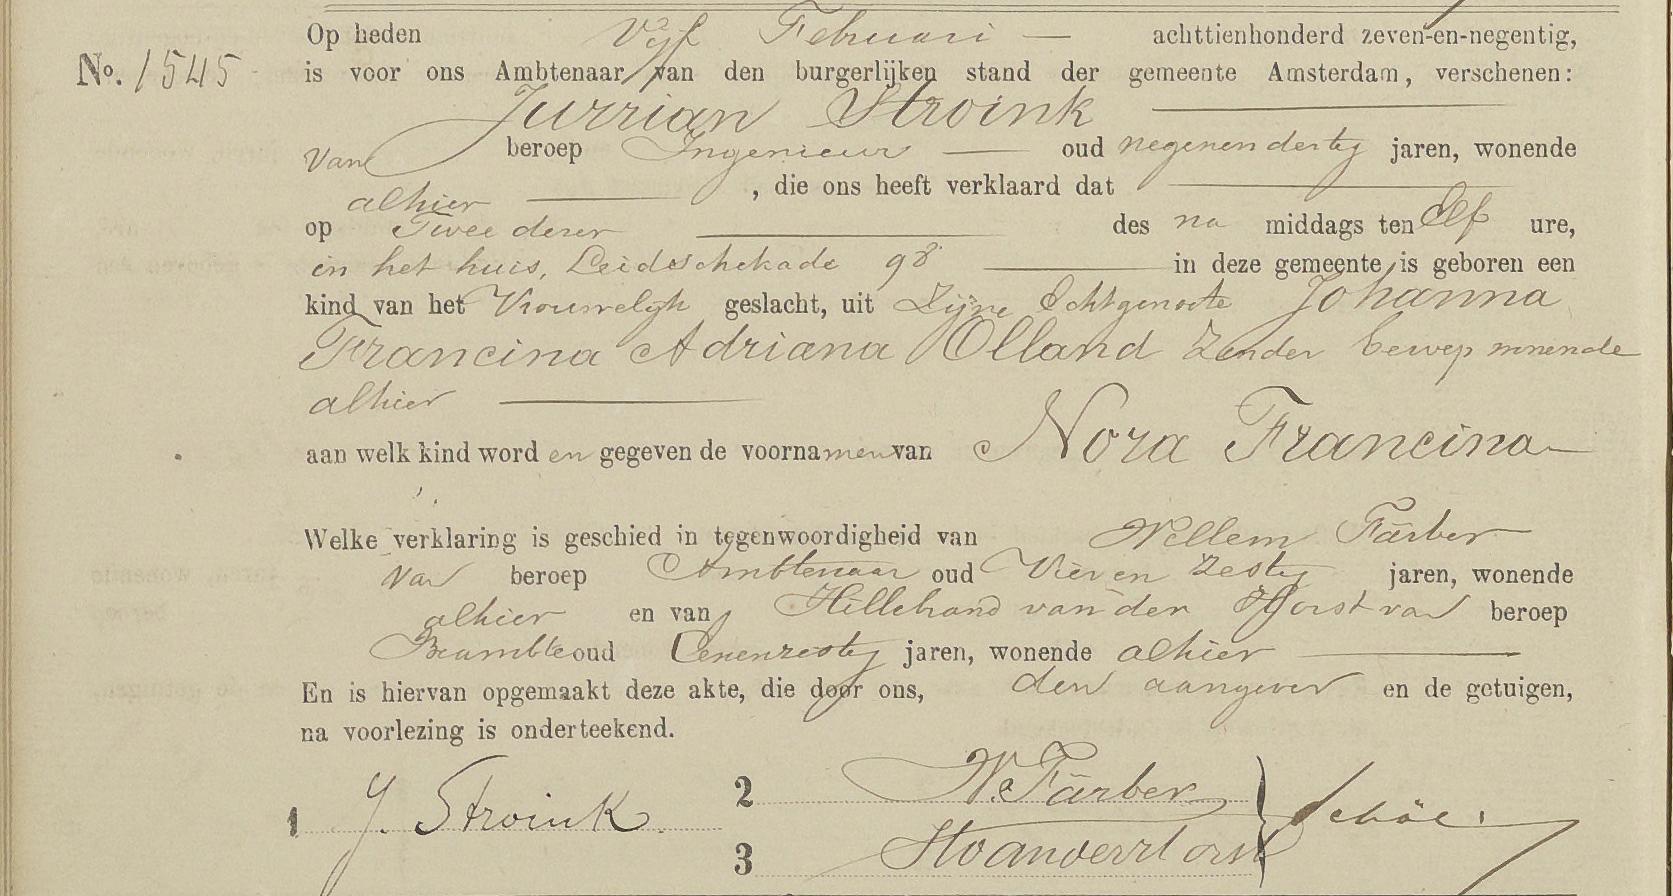 Op heden Vijf Februari — achttienhonderd zeven-en-negentig,
No. 1545 is voor ons Ambtenaar van den burgerlijken stand der gemeente Amsterdam, verschenen:
Jurrian Stroink
van beroep Ingenieur — oud negenendertig jaren, wonende
alhier —, die ons heeft verklaard dat
op Twee dezer des na middags ten Elf ure,
in het huis, Leidschekade 98 in deze gemeente is geboren een
kind van het Vrouwelijk geslacht, uit Zijne Echtgenoote Johanna
Francina Adriana Olland Zonder beroep wonende
alhier
aan welk kind worden gegeven de voornamen van Nora Francina
Welke verklaring is geschied in tegenwoordigheid van Willem Färber
van beroep Ambtenaar oud Vier en Zestig jaren, wonende
alhier en van Hillebrand van der Horst van beroep
Beambte oud Eenenzestig jaren, wonende alhier
En is hiervan opgemaakt deze akte, die door ons, den aangever en de getuigen,
na voorlezing is onderteekend.
1 J. Stroink 2 W. Färber
3 HvanderHorst